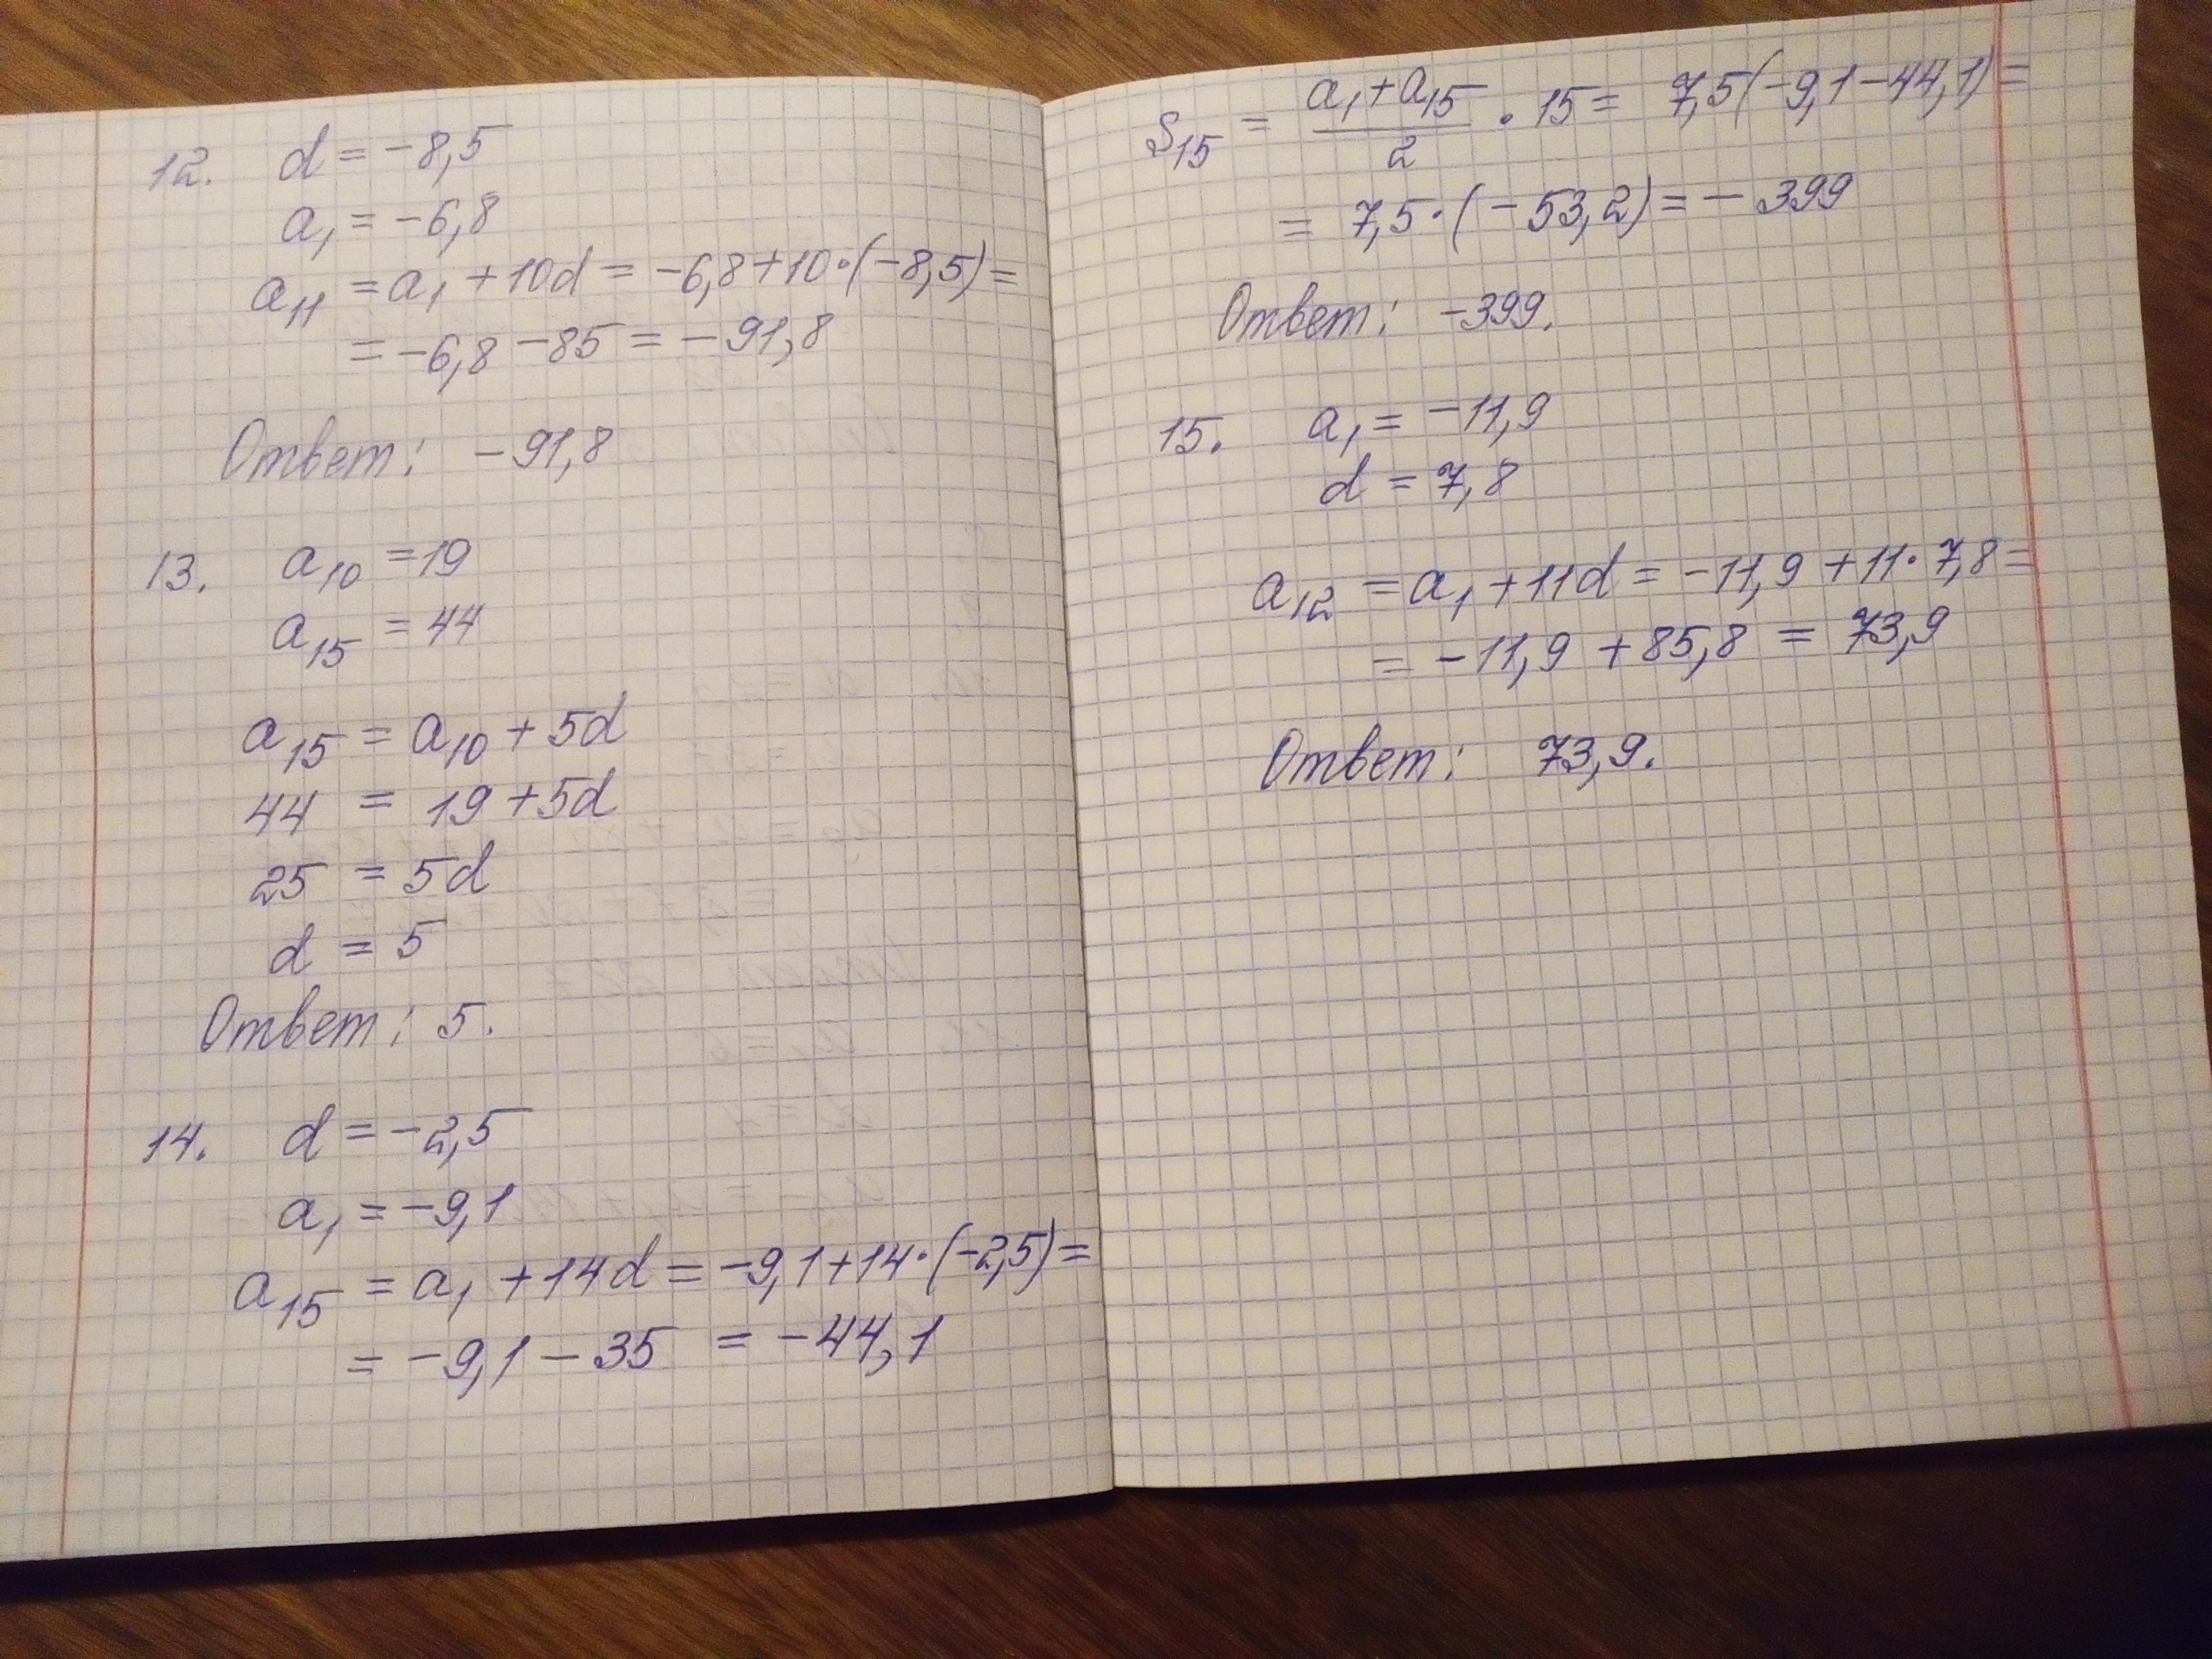 12. d = -8,5
a₁ = -6,8
a₁₁ = a₁ + 10d = -6,8 + 10·(-8,5) =
= -6,8 - 85 = -91,8
Ответ: -91,8
13. a₁₀ = 19
a₁₅ = 44
a₁₅ = a₁₀ + 5d
44 = 19 + 5d
25 = 5d
d = 5
Ответ: 5.
14. d = -2,5
a₁ = -9,1
a₁₅ = a₁ + 14d = -9,1 + 14·(-2,5) =
= -9,1 - 35 = -44,1
S₁₅ = (a₁ + a₁₅)/2 · 15 = 7,5(-9,1 - 44,1) =
= 7,5·(-53,2) = -399
Ответ: -399.
15. a₁ = -11,9
d = 7,8
a₁₂ = a₁ + 11d = -11,9 + 11·7,8 =
= -11,9 + 85,8 = 73,9
Ответ: 73,9.